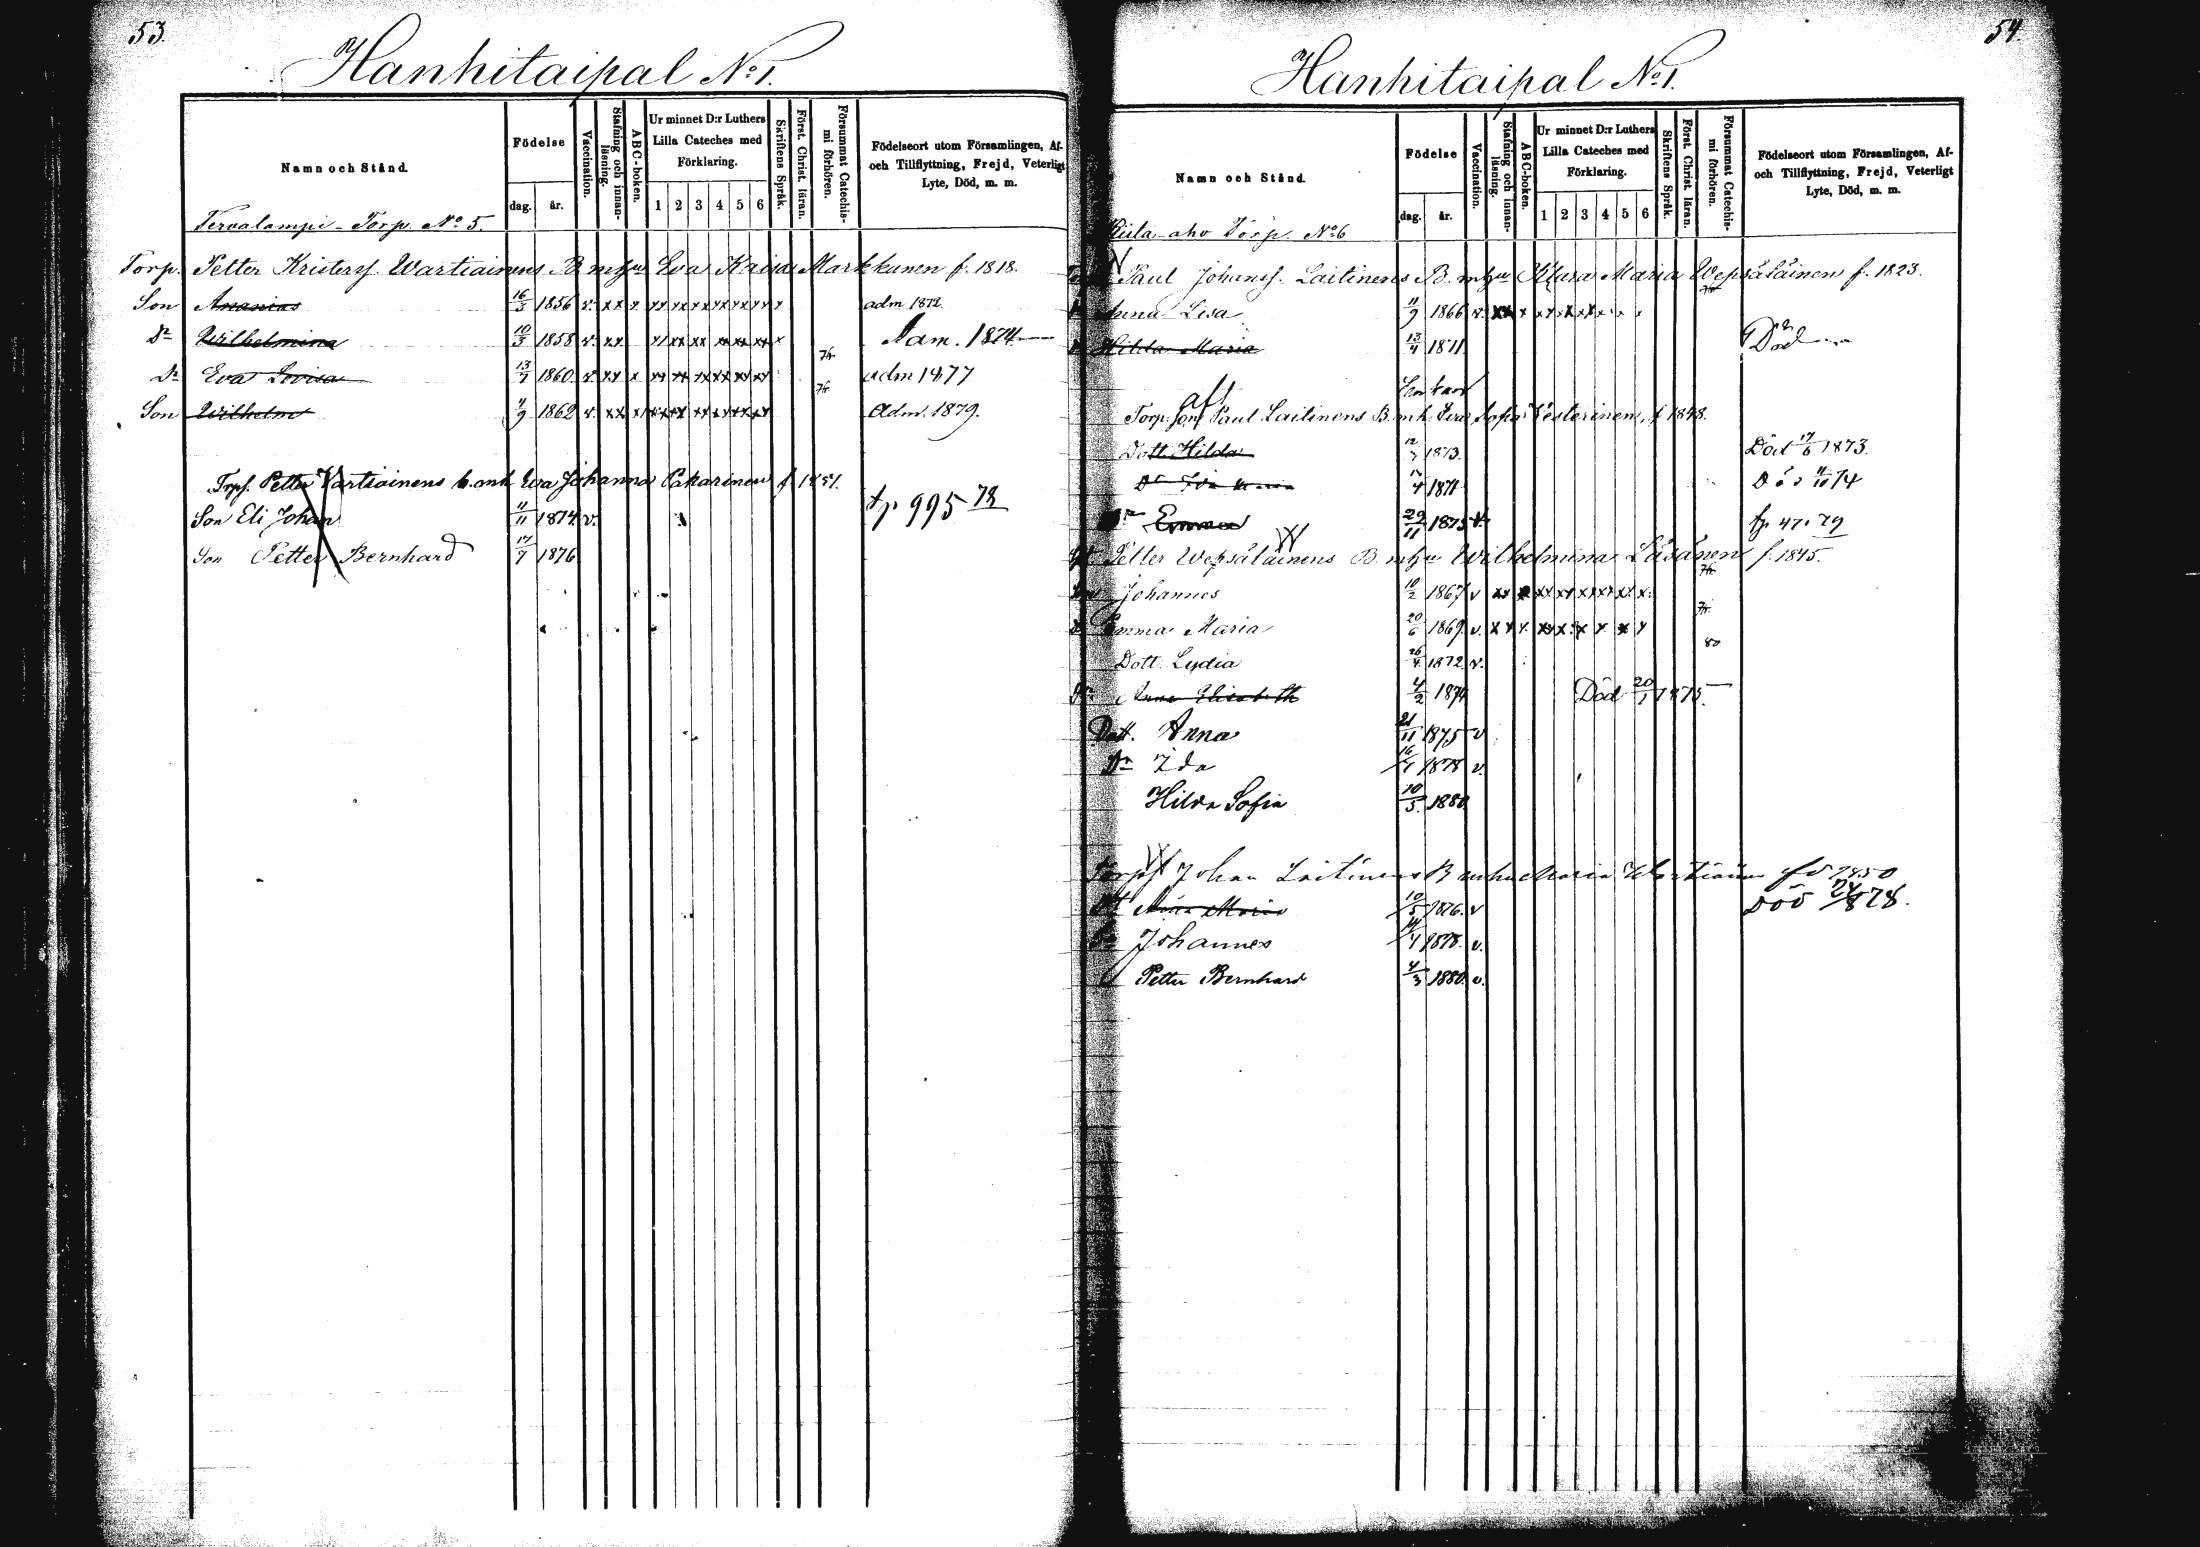 53.
Hanhitaipal No 1.
Namn och Stånd.
Födelse
dag. år.
Vaccination.
Stafning och innanläsning.
ABC-boken.
Ur minnet D:r Luthers Lilla Cateches med Förklaring.
1 2 3 4 5 6
Skriftens Språk.
Först. Christ. läran.
Försummat Catechismi förhören.
Födelseort utom Församlingen, Af- och Tillflyttning, Frejd, Veterligt Lyte, Död, m. m.
Tervalampi - Torp. No 5.
Torp. Petter Kristerss. Wartiainens B. m hu Eva Kaisa Markkanen f. 1818.
Son Ananias 16/3 1856 v. xx x xx xx xx xx xx xx x adm 1872.
Dr Wilhelmina 10/3 1858 v. xx xx xx xx xx xx x Adm. 1874
Dr Eva Lovisa 13/7 1860 v. xx x xx xx xx xx xx xx adm 1877
Son Wilhelm 4/9 1862 v. xx x xx xx xx xx xx Adm. 1879.
Torp. Petter Vartiainens b. m h Eva Johanna Pakarinen f. 1851.
Son Eli Johan 4/11 1874 v. fp 995 78
Son Petter Bernhard 17/7 1876
54.
Hanhitaipal No 1.
Namn och Stånd.
Födelse
dag. år.
Vaccination.
Stafning och innanläsning.
ABC-boken.
Ur minnet D:r Luthers Lilla Cateches med Förklaring.
1 2 3 4 5 6
Skriftens Språk.
Först. Christ. läran.
Försummat Catechismi förhören.
Födelseort utom Församlingen, Af- och Tillflyttning, Frejd, Veterligt Lyte, Död, m. m.
aho Torp. No 6
Paul Johanss. Laitinens B. m hu Klara Maria Wepsäläinen f. 1823.
Anna Lisa 11/9 1866 v. xx x
Hilda Maria 13/4 1871 Död
Enkan
Torp. son Paul Laitinens B. m h Eva Sofia Vesterinen, f 1848.
Dott. Hilda 12/3 1873. Död 17/6 1873.
1871 74
Dr Emma 29/11 1875 v. fp 471 79
Petter Wepsäläinens B. m hu Wilhelmina Läsänen f. 1845.
Johannes 10/2 1867 v xx
Emma Maria 20/6 1869. v. x x x
80
Dott. Lydia 26/4 1872 v.
Dr Anna Elisabeth 4/2 1874 Död 20/1 1875.
Dott. Anna 21/11 1875 v
Dr Ida 16/4 1878 v.
Hilda Sofia 10/5. 1880
Torps Johan Laitinens B m hu Maria Wartiainen fd 1850
Dtt Anna Maria 10/5 1876. v Död 24/8 78.
Sn Johannes 14/4 1878. v.
Petter Bernhard 4/3 1880. v.